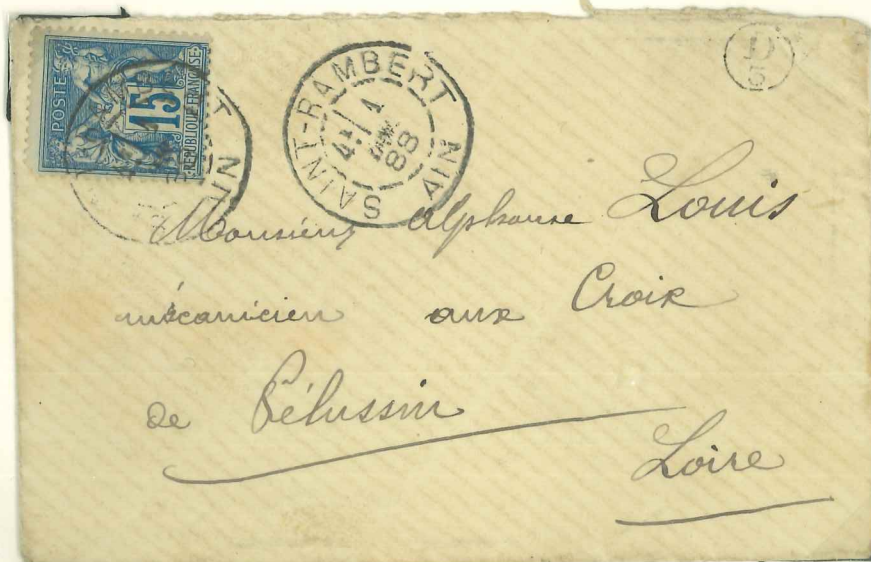 POSTE
15
REPUBLIQUE FRANÇAISE
SAINT-RAMBERT
4E
1
88
AIN
D
Monsieur Alphonse Louis
mécanicien aux Croix
de Pélussin
Loire